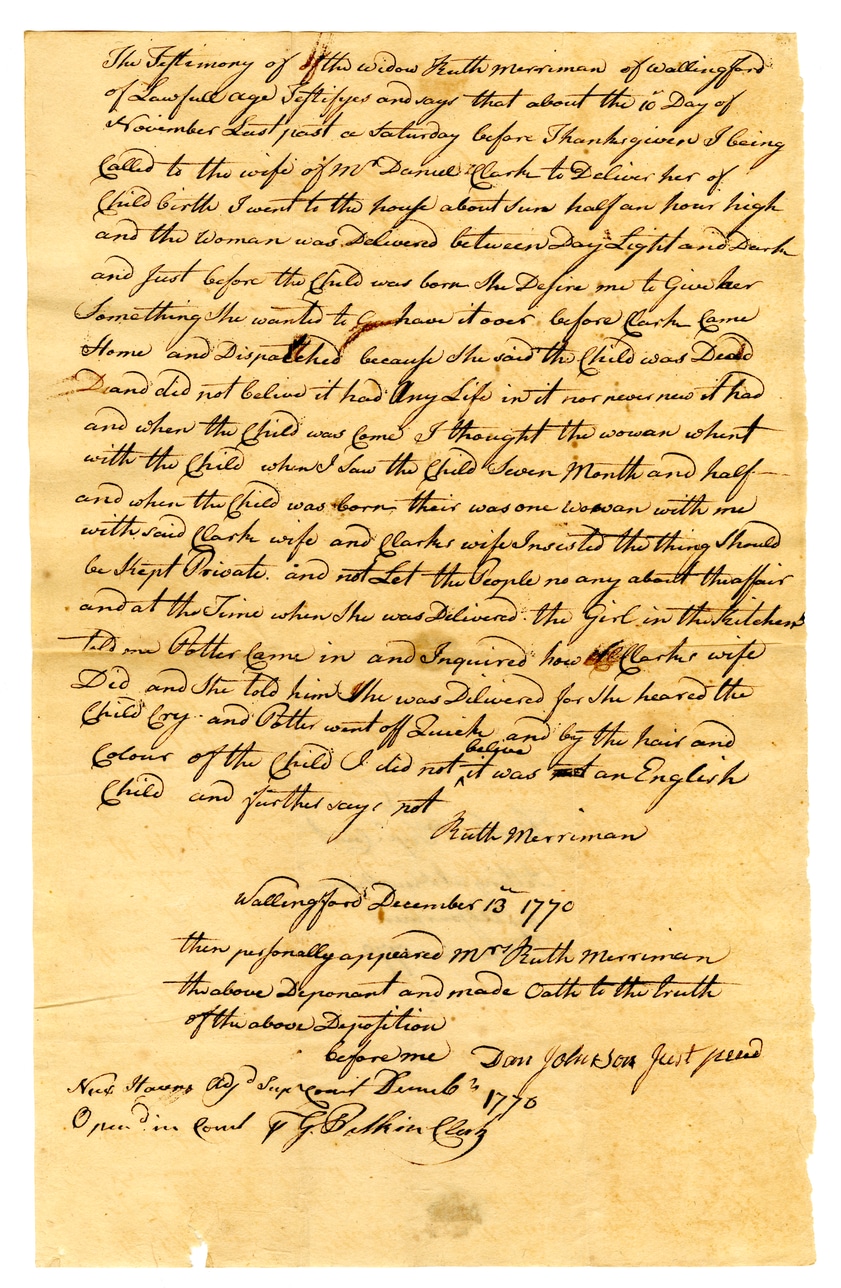 The Testimony of the widow Ruth Merriman of Wallingford
of Lawfull age Testifyes and says that about the 10 Day of
November Last past a Saturday before Thanksgiven I being
Called to the wife of Mr Daniel Clark to Deliver her of
Child birth I went to the house about sun half an hour high
and the Woman was Delivered between Day Light and Dark
and Just before the Child was born She Desire me to Give her
Something She wanted to have it over before Clark Came
Home and Dispatched because She said the Child was Dead
and did not belive it had Any Life in it nor never new it had
and when the Child was Come I thought the wowan whent
with the Child when I Saw the Child Seven Month and half
and when the Child was born their was one wowan with me
with said Clark wife and Clarks wife Insisted the thing Should
be Kept Private and not Let the People no any about the affair
and at the Time when She was Delivered the Girl in the Kitchen
told me Potter Came in and Inquired how Clarks wife
Did and She told him She was Dilivered for She heared the
Child Cry and Potter went off Quick and by the hair and
Colour of the Child I did not belive it was not an English
Child and further says not
Ruth Merriman
Wallingford December 13th 1770
then personally appeared Mrs Ruth Merriman
the above Deponant and made Oath to the truth
of the above Deposition
before me Dan Johnson Just peace
New Haven Adjd Sup Court Decembr 1770
Opend in Court G. Pitkin Clerk